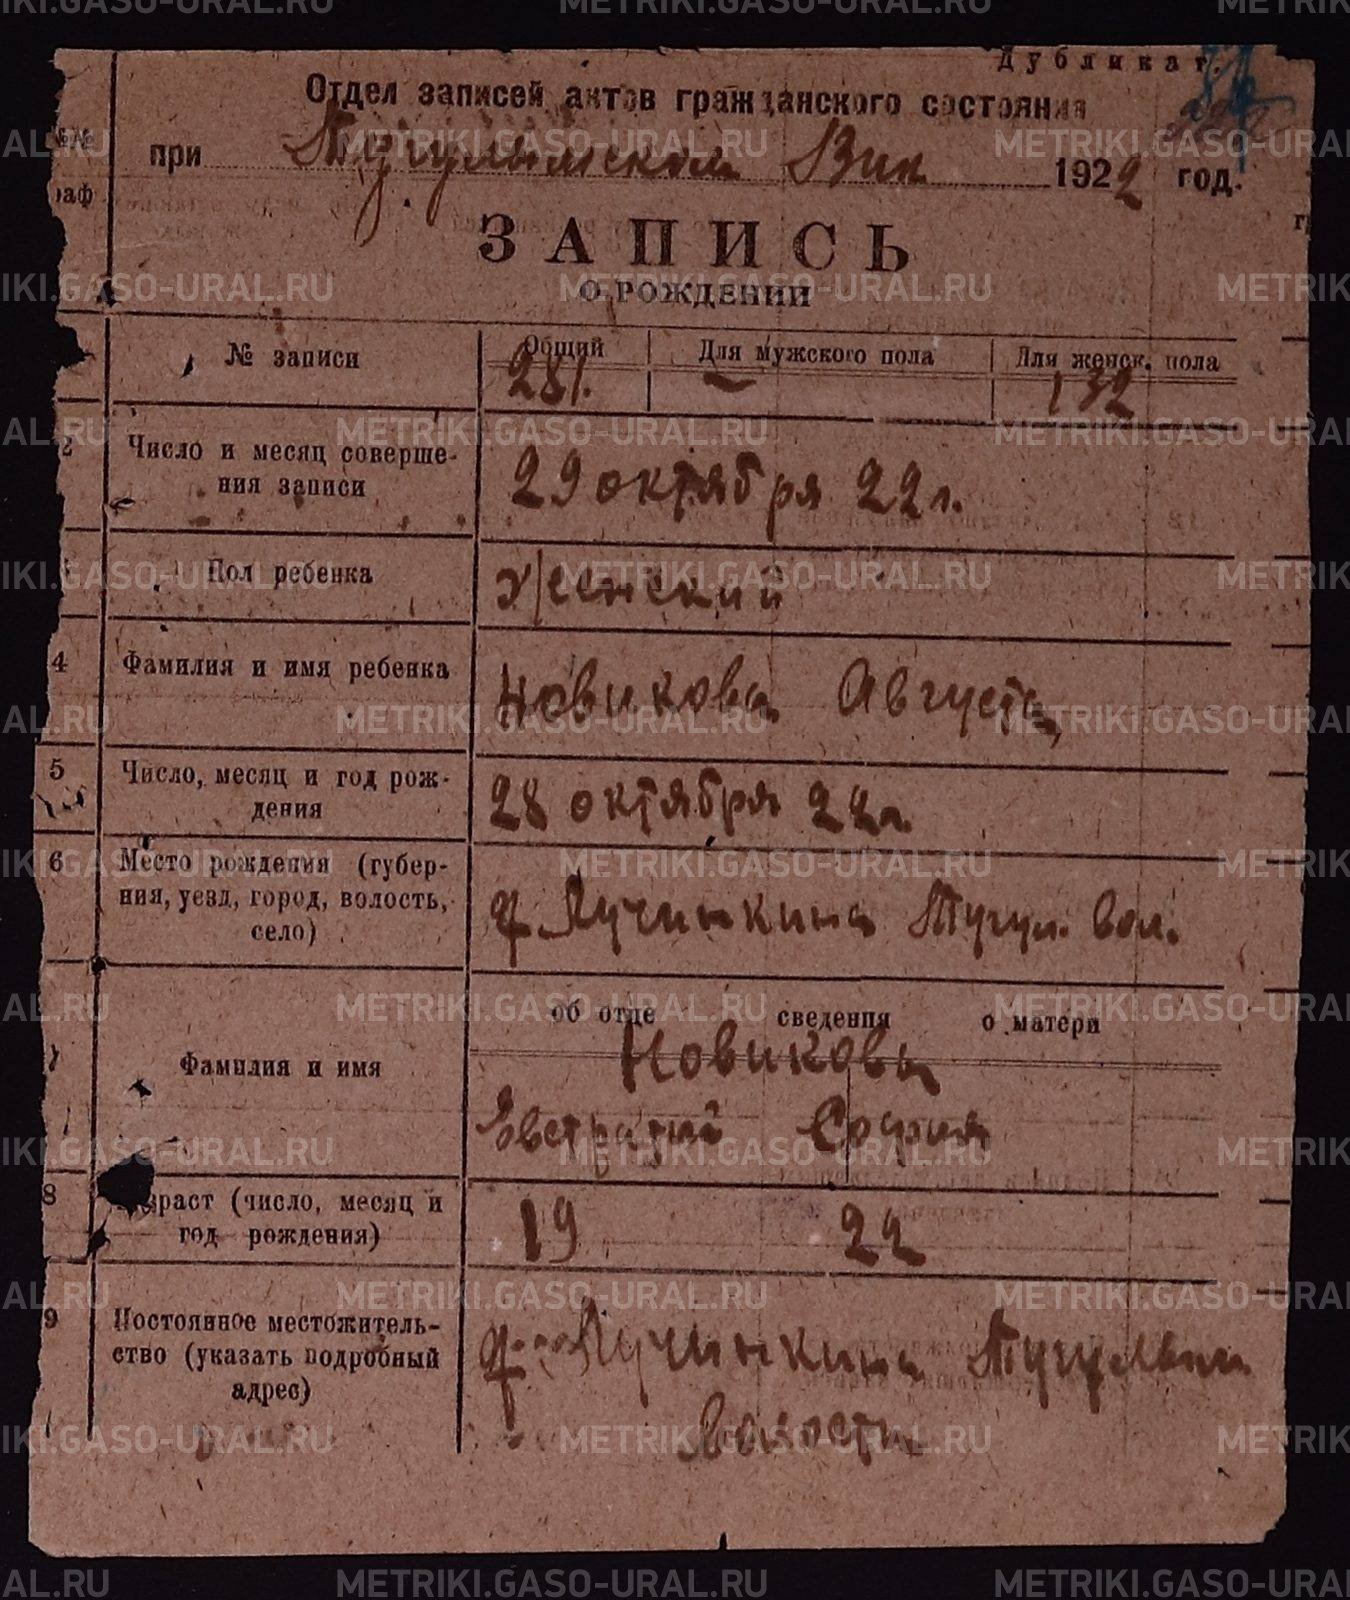 Дубликат.
Отдел записей актов гражданского состояния
№№
раф
при Тугулымском Вик 1922 год.
ЗАПИСЬ
О РОЖДЕНИИ
№ записи Общий Для мужского пола Для женск. пола
281. — 132
2 Число и месяц соверше-
ния записи
29 октября 22 г.
Пол ребенка Женский
4 Фамилия и имя ребенка Новикова Августа
5 Число, месяц и год рож-
дения
28 октября 22 г.
6 Место рождения (губер-
ния, уезд, город, волость,
село)
д. Лучинкина Тугул. вол.
об отце сведения о матери
Фамилия и имя
Новиковы
Евстратий София
8 Возраст (число, месяц и
год рождения)
19 22
9 Постоянное местожитель-
ство (указать подробный
адрес)
д. Лучинкина Тугулым
Волости
METRIKI.GASO-URAL.RU